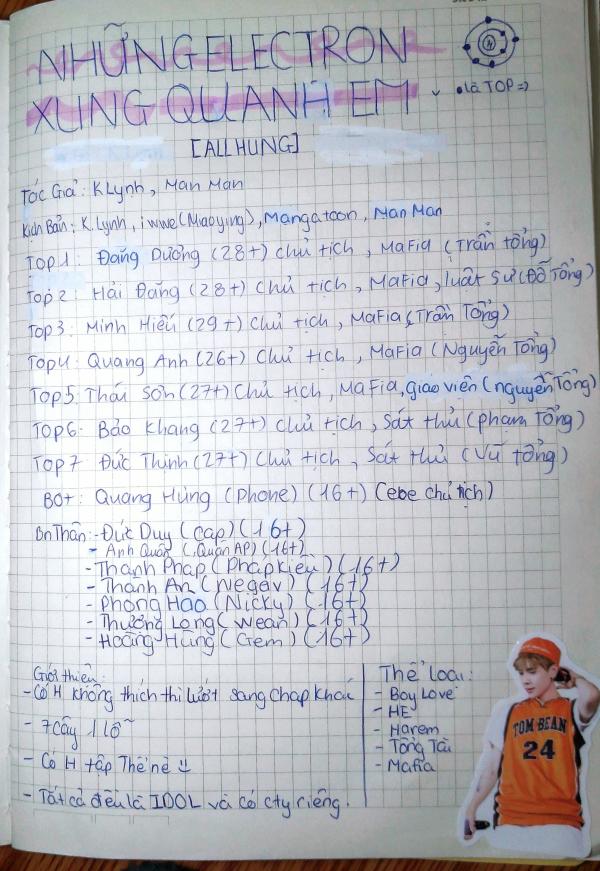 NHỮNG ELECTRON
XUNG QUANH EM
• là TOP =>
[ALLHUNG]
Tác Giả: K Lynh, Man Man
Kịch Bản: K.Lynh, iwwe (Miaoying), Mangatoon, Man Man
TOP 1: Đăng Dương (28+) Chủ tịch, Mafia (Trần Tổng)
Top 2: Hải Đăng (28+) Chủ tịch, Mafia, luật sư (Đỗ Tổng)
Top 3: Minh Hiếu (29+) Chủ tịch, Mafia (Trần Tổng)
Top 4: Quang Anh (26+) Chủ tịch, Mafia (Nguyễn Tổng)
TOP 5: Thái Sơn (27+) Chủ tịch, Mafia, giáo viên (nguyễn Tổng)
TOP 6: Bảo Khang (27+) Chủ tịch, Sát thủ (phạm Tổng)
TOP 7: Đức Thịnh (27+) Chủ tịch, Sát thủ (Vũ tổng)
BOt: Quang Hùng (Phone) (16+) (ebe chủ tịch)
Bn Thân: - Đức Duy (Cap) (16+)
- Anh Quân (Quân AP) (16+)
- Thanh Pháp (Pháp kiều) (16+)
- Thành An (Negav) (16+)
- Phong Hào (Nicky) (16+)
- Thượng Long (Wean) (16+)
- Hoàng Hùng (Gem) (16+)
Giới thiệu:
- Tất cả đều là IDOL và có cty riêng.
Thể loại:
- Boy Love
- HE
- Harem
- Tổng Tài
- Mafia
TOM BEAN
24